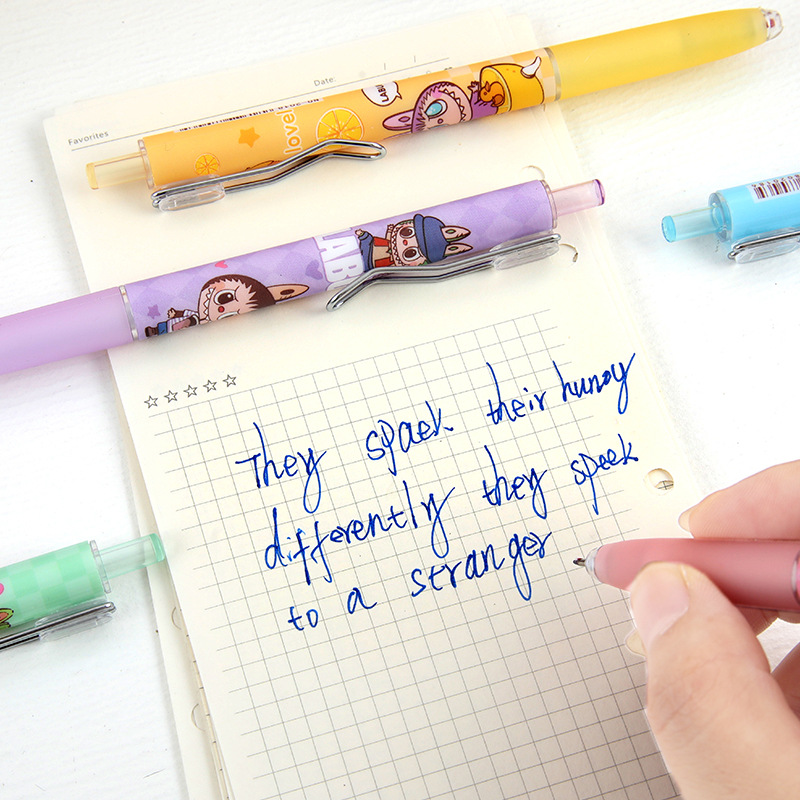 Date: / /
Favorites
love
LABU
LAB
They spaek their hunoy
differently they speek
to a stranger